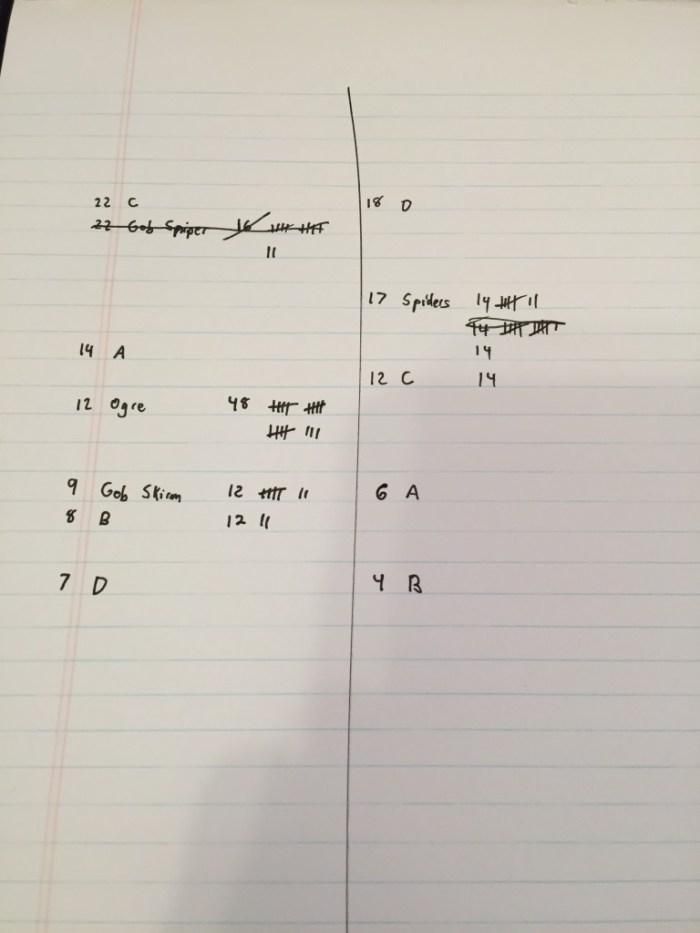 22 C
22 Gob Sniper 16 𝍸 𝍸
||
14 A
12 Ogre 48 𝍸 𝍸
𝍸 |||
9 Gob Skirm 12 𝍸 ||
8 B 12 ||
7 D
18 D
17 Spiders 14 𝍸 ||
14 𝍸 𝍸
14
12 C 14
6 A
4 B